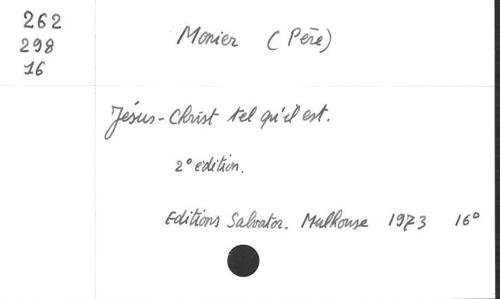 262
298
16
Monier (Père)
Jésus-Christ tel qu'il est.
2° edition.
Editions Salvator. Mulhouse 1973 16°